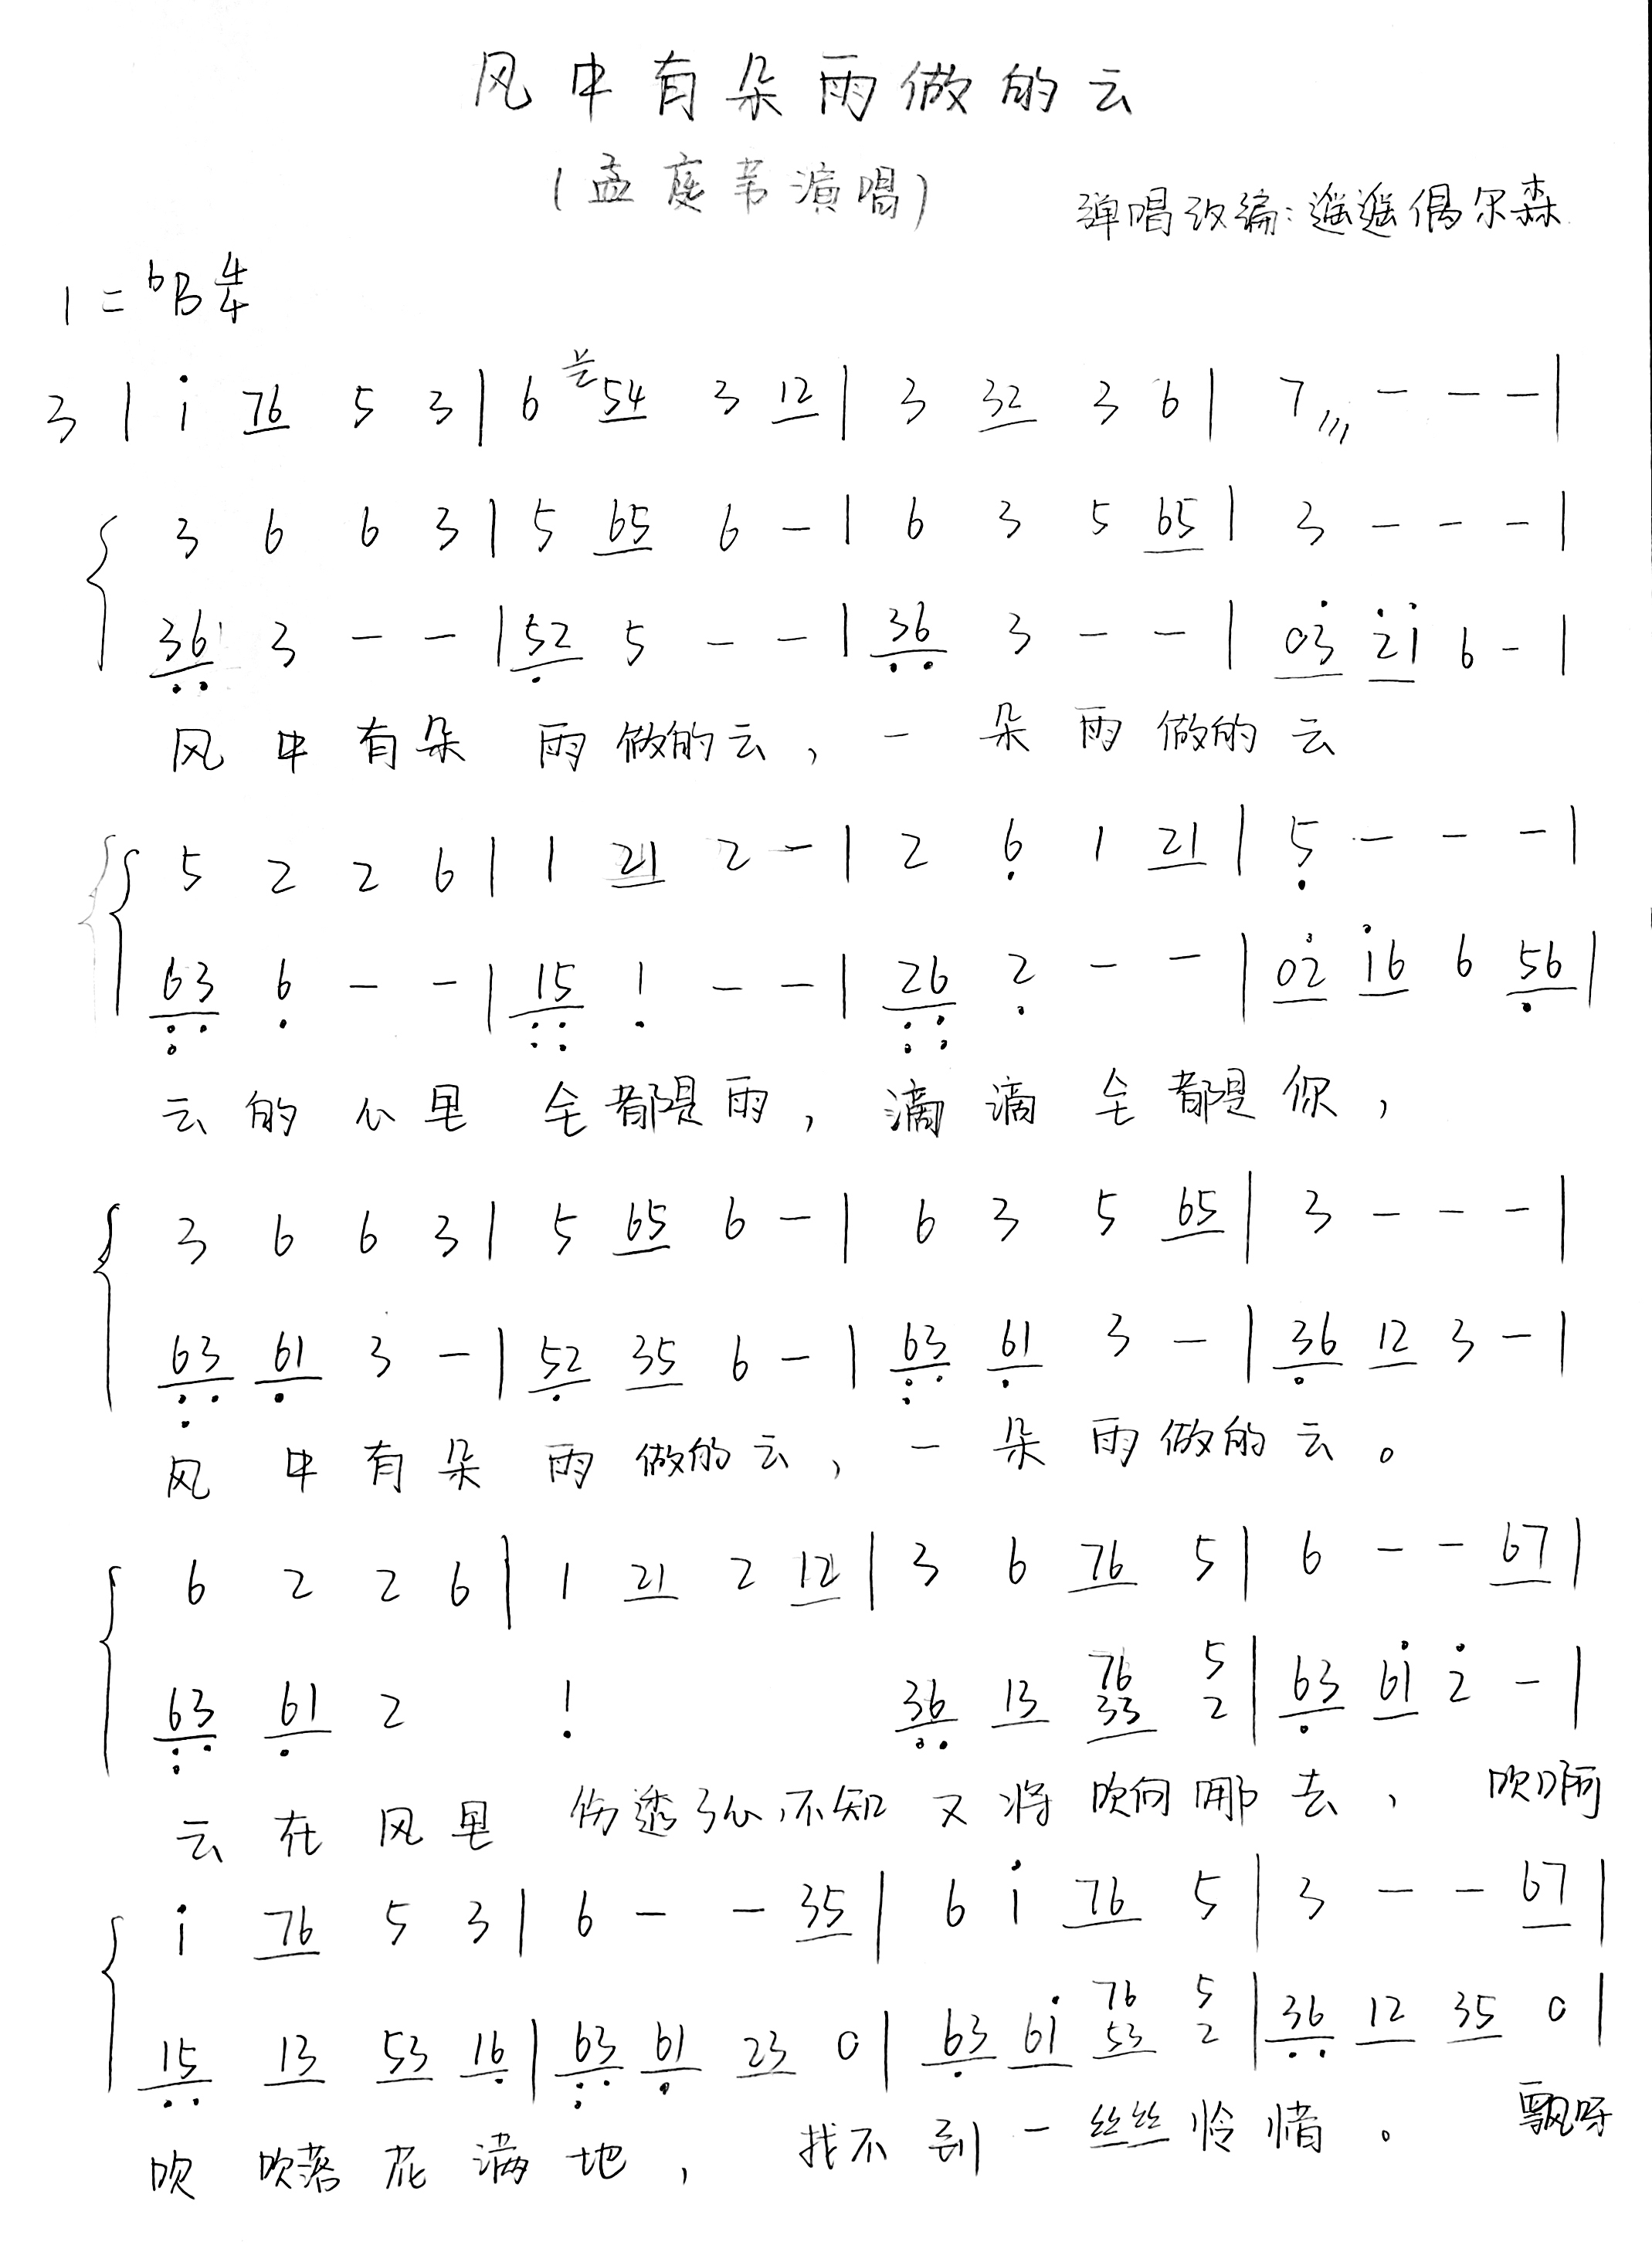 风中有朵雨做的云
(孟庭苇演唱)
弹唱改编:遥遥偶尔森
1=♭B 4/4
3 | i̇ 76 5 3 | 6 54 3 12 | 3 32 3 6 | 7/// - - - |
3 6 6 3 | 5 65 6 - | 6 3 5 65 | 3 - - - |
3̣6̣ 3 - - | 5̣2 5 - - | 3̣6̣ 3 - - | 03̇ 2̇1̇ 6 - |
风中有朵 雨做的云,一 朵 雨做的 云
5 2 2 6 | 1 21 2 - | 2 6̣ 1 21 | 5̣ - - - |
6̣̣3̣ 6̣ - - | 1̣̣5̣̣ 1̣ - - | 2̣̣6̣̣ 2̣ - - | 02̇ 1̇6 6 5̣6 |
云的心里 全都是雨,滴 滴 全都是你,
3 6 6 3 | 5 65 6 - | 6 3 5 65 | 3 - - - |
6̣̣3̣ 6̣1 3 - | 5̣2 35 6 - | 6̣̣3̣ 6̣1 3 - | 3̣6 12 3 - |
风 中有朵 雨 做的云,一 朵 雨做的云。
6 2 2 6 | 1 21 2 12 | 3 6 76 5 | 6 - - 67 |
76 5
6̣̣3̣ 6̣1 2 1̣ 3̣6̣ 13 33 2 | 6̣3 61̇ 2̇ - |
云在风里 伤透了心,不知 又将 吹向哪去, 吹啊
1̇ 76 5 3 | 6 - - 35 | 6 1̇ 76 5 | 3 - - 67 |
76 5
1̣5̣ 13 53 16̣ | 6̣̣3̣ 6̣1 23 0 | 6̣3 61̇ 53 2 | 3̣6̣ 12 35 0 |
吹 吹落花满地, 找不到一丝丝怜惜。 飘呀